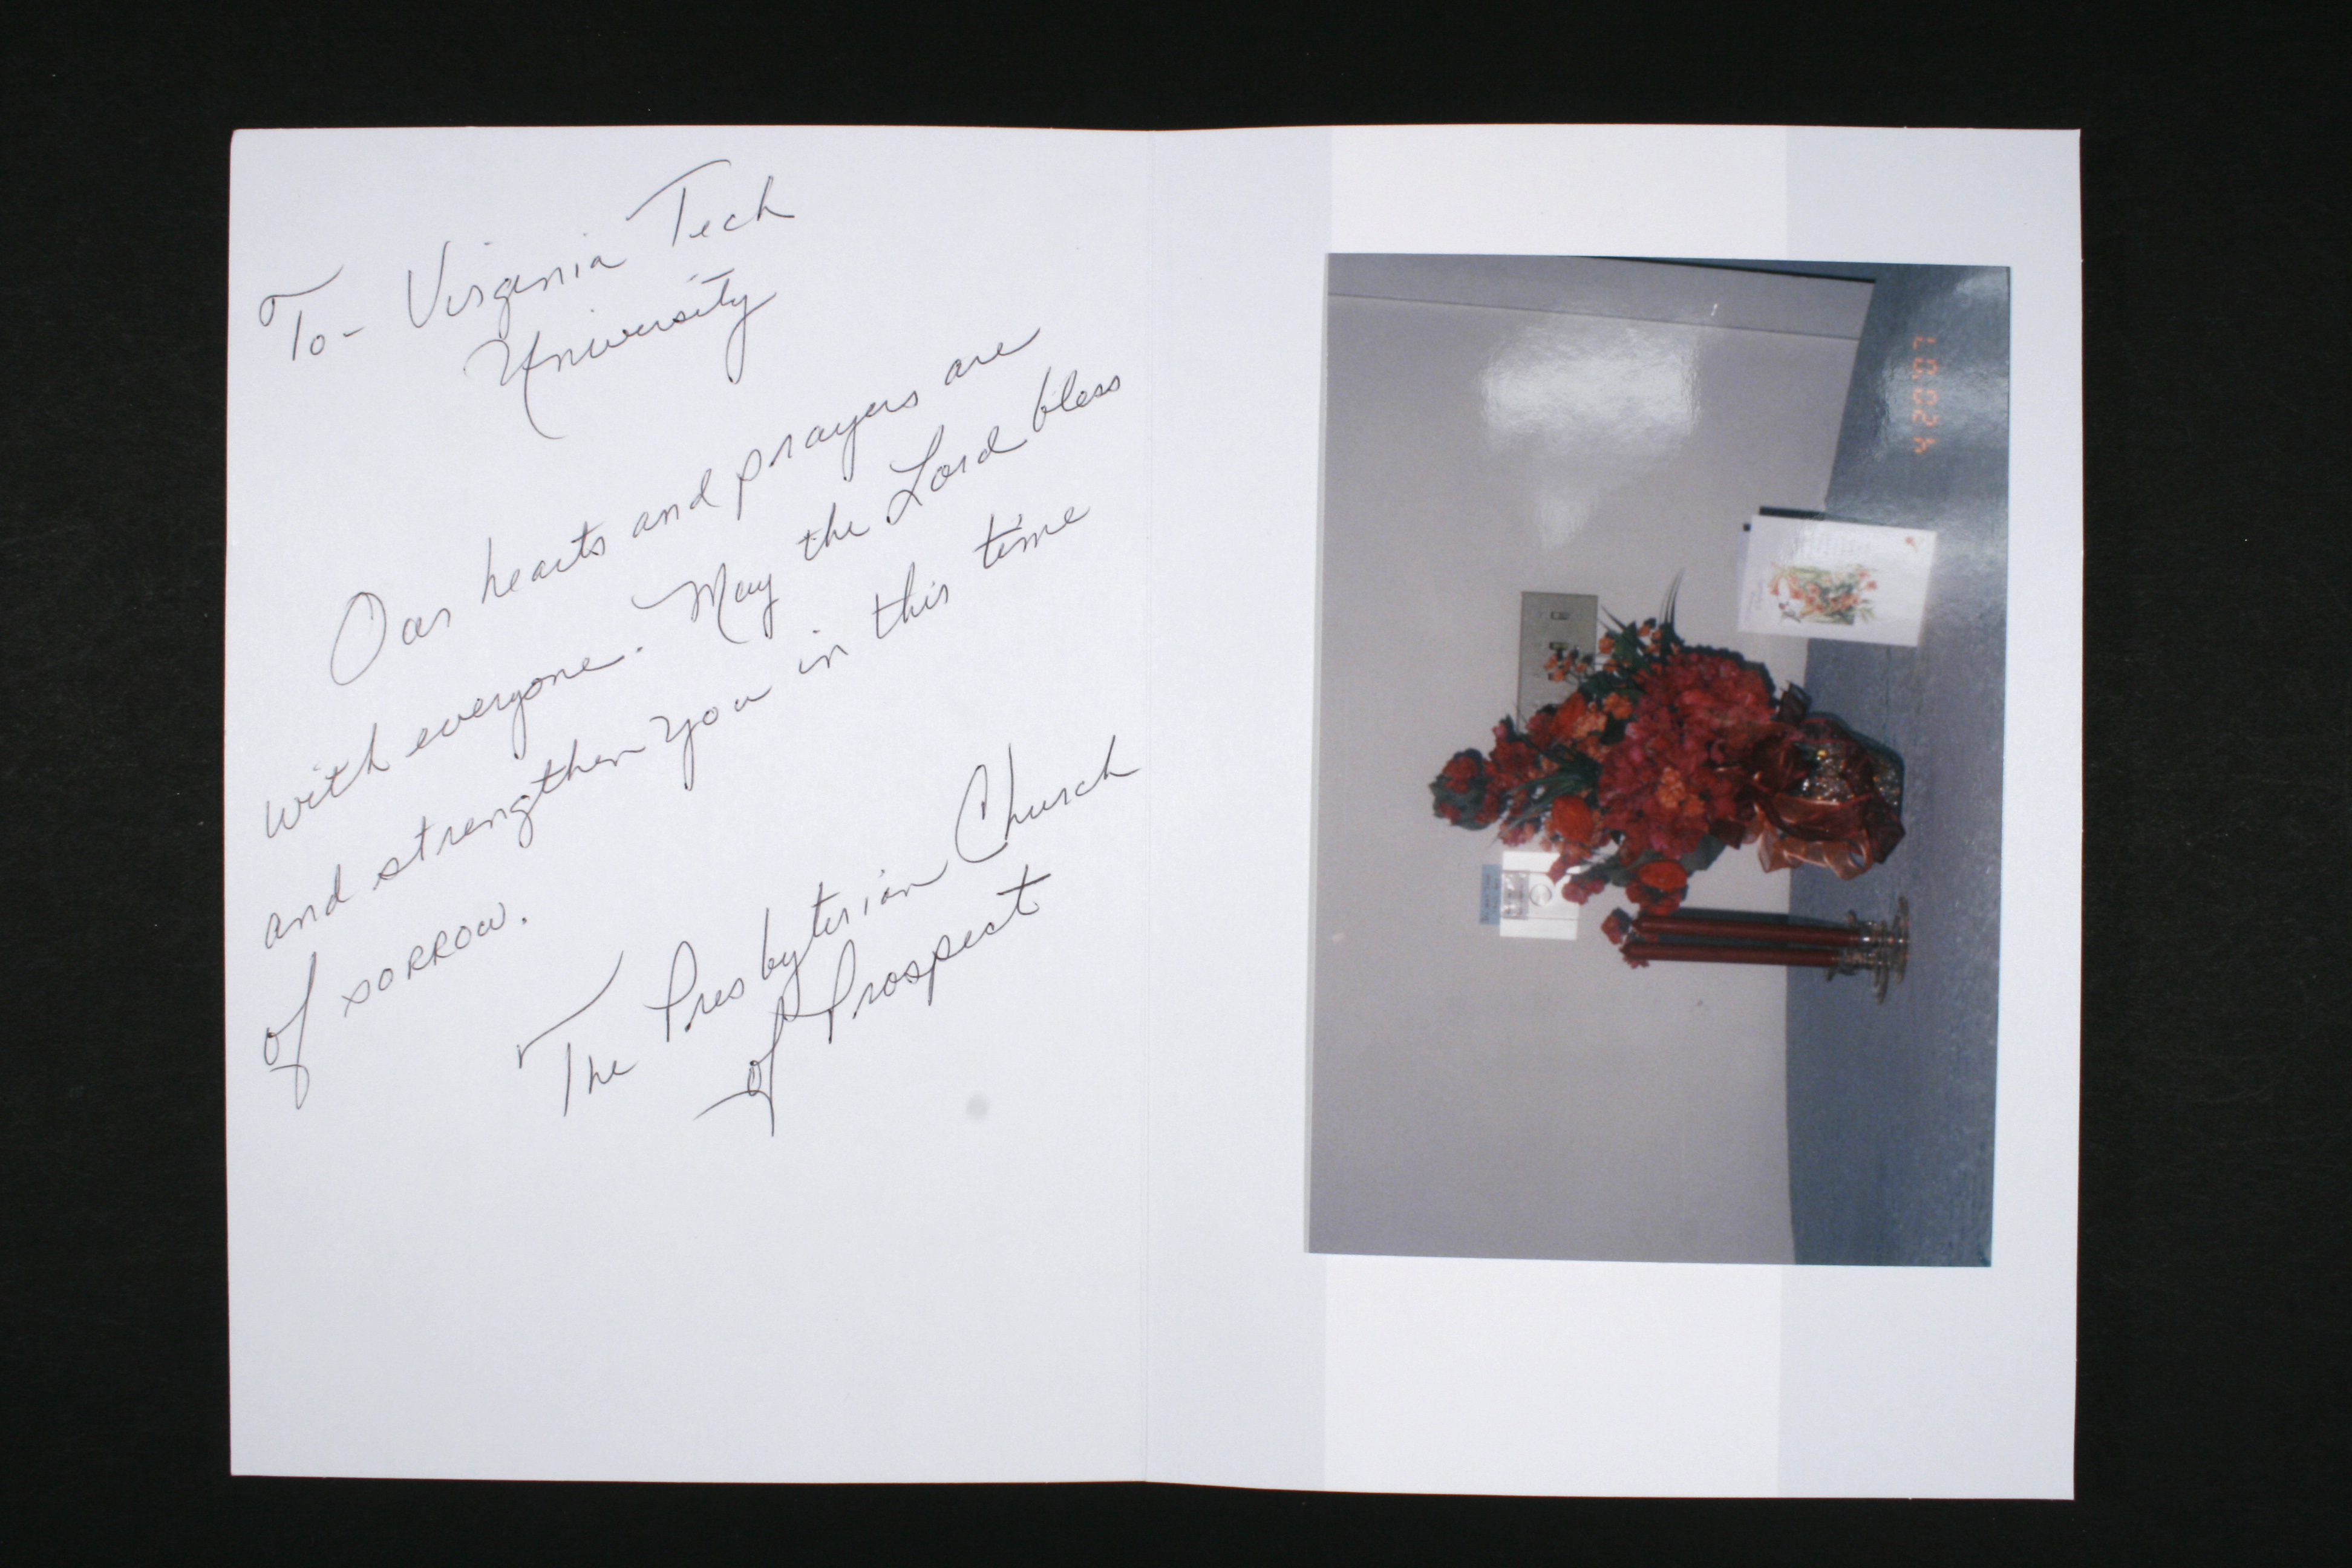 To- Virginia Tech
University
Our hearts and prayers are
with everyone. May the Lord bless
and strengthen you in this time
of sorrow.
The Presbyterian Church
of Prospect